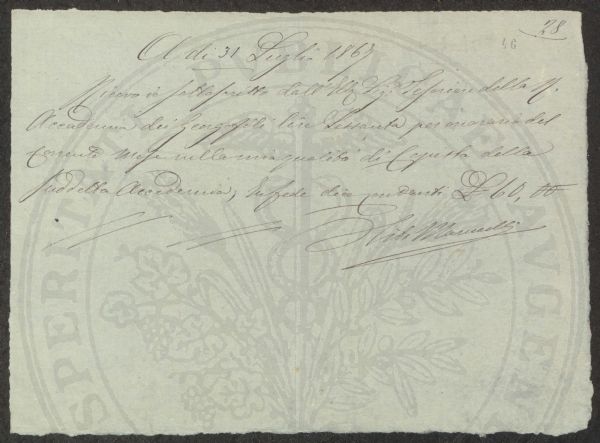 28
46
A dì 31 Luglio 1867
Ricevo io sottoscritto dall' Ill. Sig. Tesoriere della R.
Accademia dei Georgofili lire Sessanta per onorario del
corrente mese nella mia qualità di Copista della
suddetta Accademia, in fede dico contanti £ 60,00
Marucelli
PROSPERITATI PUBLICAE AUGENDAE